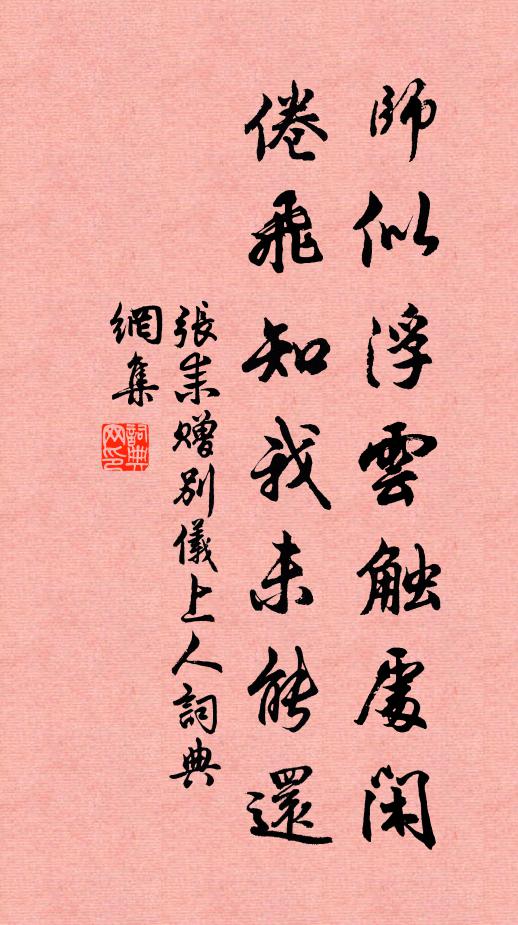 師似浮雲触處閑
倦飛知我未能還
張耒贈别儀上人詞典
網集
詞典
网印